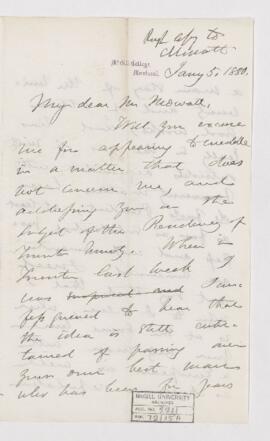 Rough copy to
McGill College
Montreal.
Jany 5, 1880.
My dear Mr
Will you excuse
me for appearing to meddle
in a matter that does
not concern me, and
addressing you on the
subject of the Presidency of
When in
last week I
was surprised and I con-
fess grieved to hear that
the idea is still enter-
tained of passing over
your own best man
who has been for years
McGILL UNIVERSITY
ARCHIVES
ACC. NO.
REF.